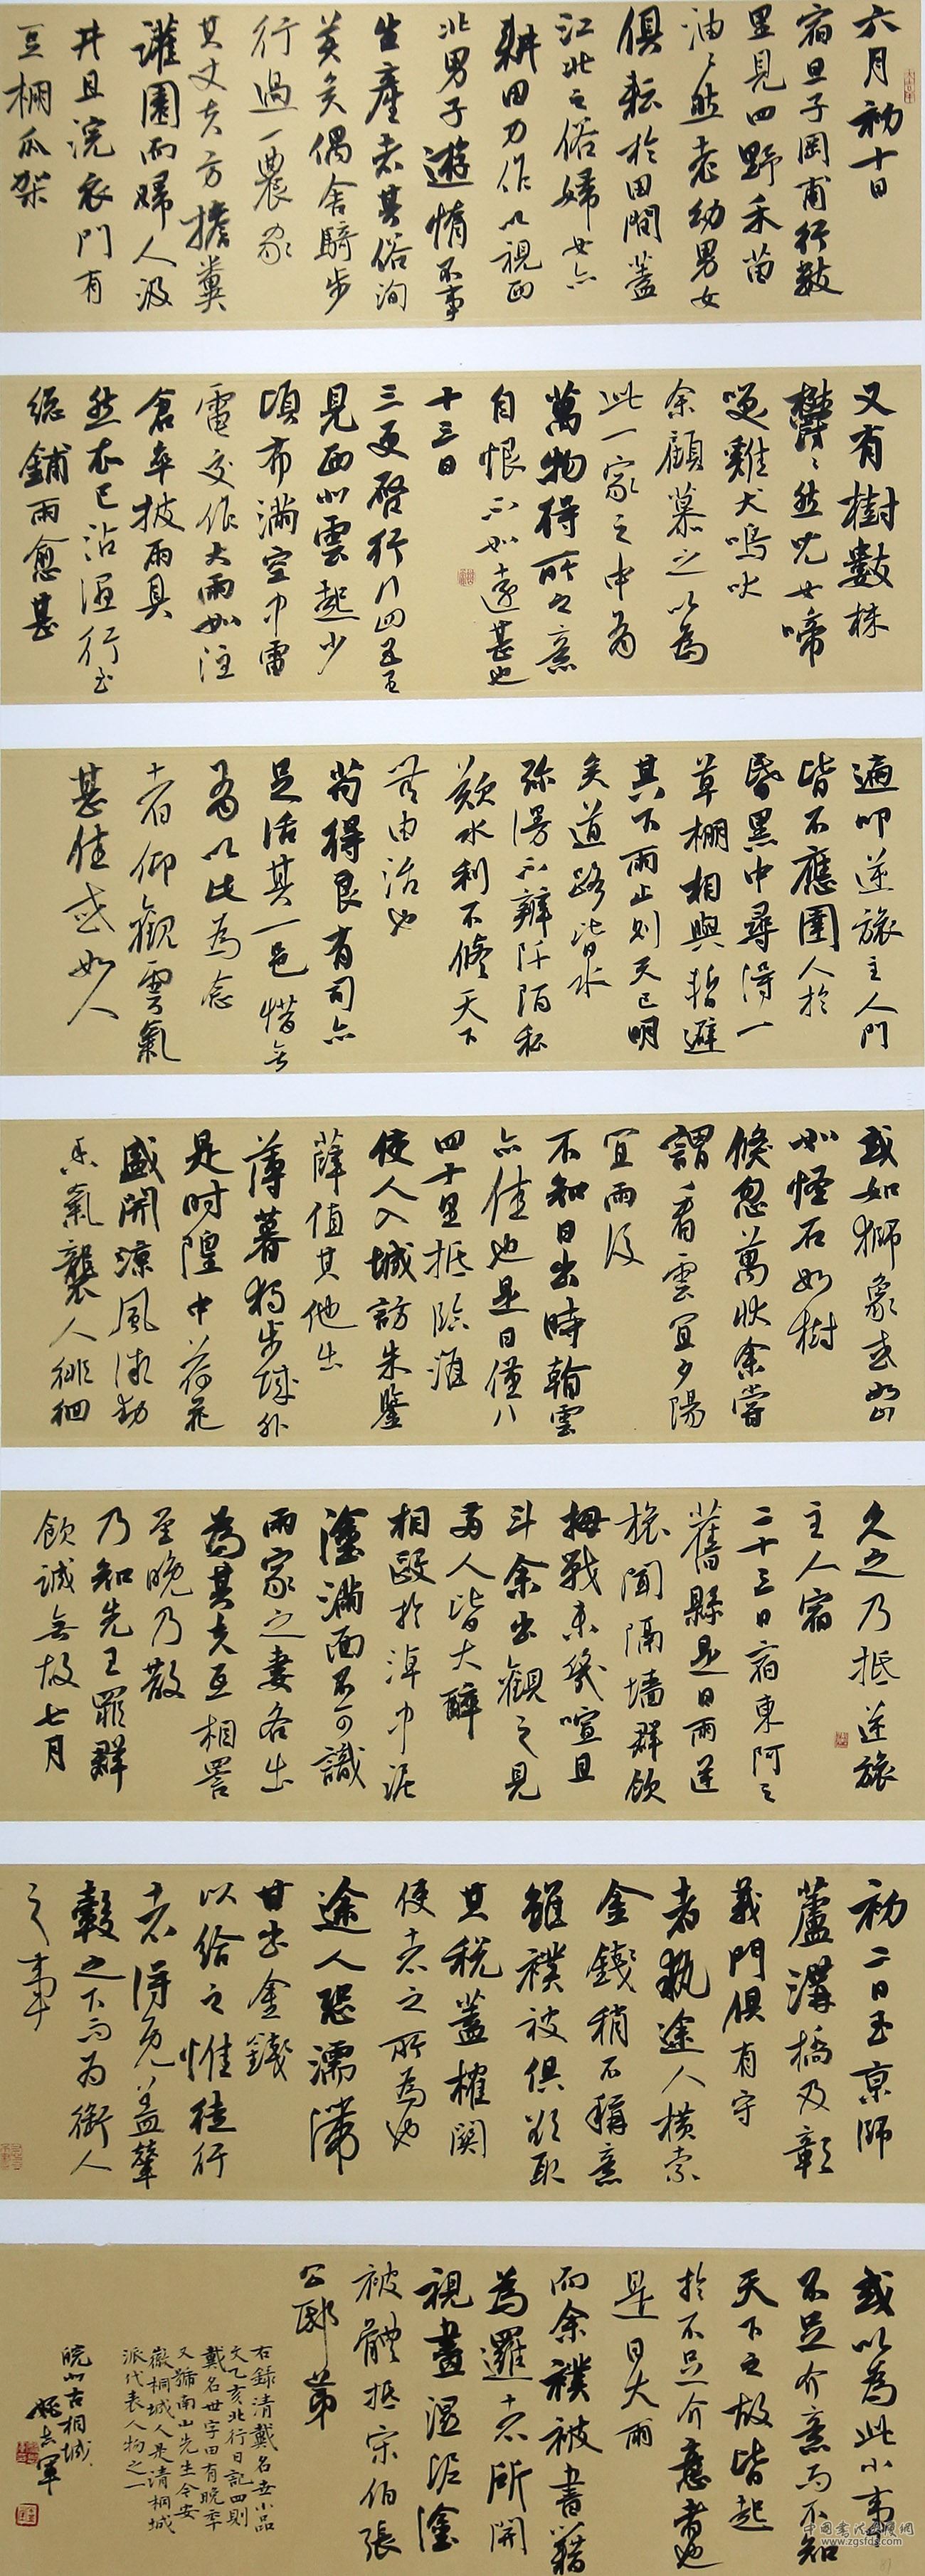 六月初十日
宿旦子岡甫行數
里見四野禾苗
油々然老幼男女
俱耘於田間蓋
江北之俗婦女亦
耕田力作以視西
北男子遊惰不事
生產者其俗洵
美矣偶舍騎步
行過一農家
其丈夫方擔糞
灌園而婦人汲
井且浣衣門有
豆棚瓜架
又有樹數株
鬱々然兒女啼
笑雞犬鳴吠
余顧慕之以為
此一家之中為
萬物得所之意
自恨不如遠甚也
十三日
三更啓行行四五里
見西北雲起少
頃布滿空中雷
電交作大雨如注
倉卒披雨具
然衣已沾濕行至
總鋪雨愈甚
遍叩逆旅主人門
皆不應圉人於
昏黑中尋得一
草棚相與暫避
其下雨止則天已明
矣道路皆水
弥漫不辨阡陌私
歎水利不修天下
無由治也
苟得良有司亦
足活其一邑惜無
為以此為念
者仰觀雲氣
甚佳或如人
或如獅象或如山
如怪石如樹
倏忽萬狀余嘗
謂看雲宜夕陽
宜雨後
不知日出時看雲
亦佳也是日僅八
四十里抵臨淮
使人入城訪朱鑒
薛值其他出
薄暮獨步城外
是時隍中荷花
盛開涼風微動
香氣襲人徘徊
久之乃抵逆旅
主人宿
二十三日宿東阿之
舊縣是日雨逆
旅聞隔墻群飲
拇戰未幾喧且
斗余出觀之見
兩人皆大醉
相毆於淖中泥
塗滿面不可識
兩家之妻各出
為其夫互相詈
至晚乃散
乃知先王罪群
飲誠無故七月
初二日至京師
蘆溝橋及彰
義門俱有守
者執途人橫索
金錢稍不稱意
雖襆被俱欲取
其稅蓋榷關
使者之所為也
途人恐濡滯
甘出金錢
以給之惟徒行
者得免蓋輦
轂之下而為衛人
之事
或以為此小事
不足介意而不知
天下之故皆起
於不足介意者也
是日大雨
而余襆被書籍
為邏者所開
視盡濕泥塗
被體抵宋伯張
公邸第
右錄清戴名世小品
文乙亥北行日記四則
戴名世字田有晚年
又號南山先生今安
徽桐城人是清桐城
派代表人物之一
皖北古桐城
中国书法展网
www.zgsfds.com